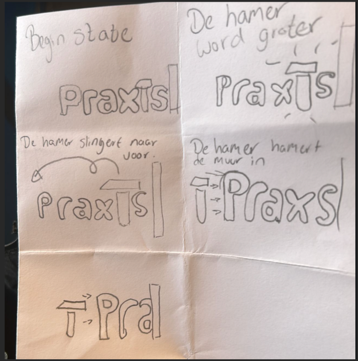 Begin state
Praxis
De hamer
word groter
PraxTs
De hamer slingert naar
voor.
PraxTs
De hamer hamert
de muur in
T Praxs
T Pra